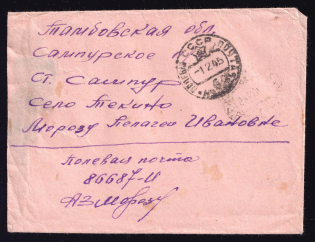 Тамбовская обл.
Сампурское
Ст. Сампур
Село Текино
Морозу Пелагеи Ивановне
Полевая почта
86687-И
А.З. Морозу
СССР ПОЧТА
-1 2 45